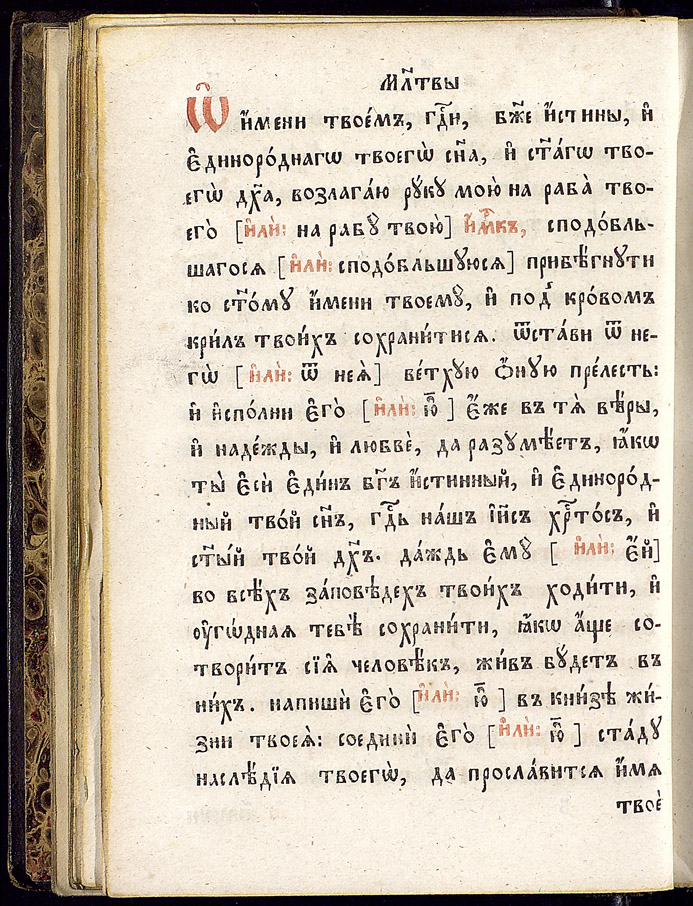 Мл҃твы
Ѡ҆ и҆́мени твое́мъ, гдⷭ҇и, бж҃е и҆́стины, и҆
є҆диноро́днагѡ твоегѡ̀ сн҃а, и҆ ст҃а́гѡ тво-
егѡ̀ дх҃а, возлага́ю рꙋ́кꙋ мою̀ на раба̀ тво-
его̀ [и҆лѝ: на рабꙋ̀ твою̀] и҆́м҃къ, сподо́бль-
шагосѧ [и҆лѝ: сподо́бльшꙋюсѧ] прибѣ́гнꙋти
ко ст҃о́мꙋ и҆́мени твоемꙋ̀, и҆ под̾ кро́вомъ
кри́лъ твои́хъ сохрани́тисѧ. ѿста́ви ѿ не-
гѡ̀ [и҆лѝ: ѿ неѧ̀] ве́тхꙋю ѻ҆́нꙋю пре́лесть:
и҆ и҆спо́лни є҆го̀ [и҆лѝ: ю҆̀] є҆́же въ тѧ̀ вѣ́ры,
и҆ наде́жды, и҆ любвѐ, да разꙋмѣ́етъ, ꙗ҆́кѡ
ты̀ є҆сѝ є҆ди́нъ бг҃ъ и҆́стинный, и҆ є҆диноро́д-
ный тво́й сн҃ъ, гдⷭ҇ь на́шъ і҆и҃съ хрⷭ҇то́съ, и҆
ст҃ы́й тво́й дх҃ъ. да́ждь є҆мꙋ̀ [и҆лѝ: є҆́й]
во всѣ́хъ за́повѣдехъ твои́хъ ходи́ти, и҆
ᲂу҆гѡ́днаѧ тебѣ̀ сохрани́ти, ꙗ҆́кѡ а҆́ще со-
твори́тъ сїѧ̑ человѣ́къ, жи́въ бꙋ́детъ въ
ни́хъ. напишѝ є҆го̀ [и҆лѝ: ю҆̀] въ кни́зѣ жи́-
зни твоеѧ̀: соединѝ є҆го̀ [и҆лѝ: ю҆̀] ста́дꙋ
наслѣ́дїѧ твоегѡ̀, да просла́витсѧ и҆́мѧ
твоѐ